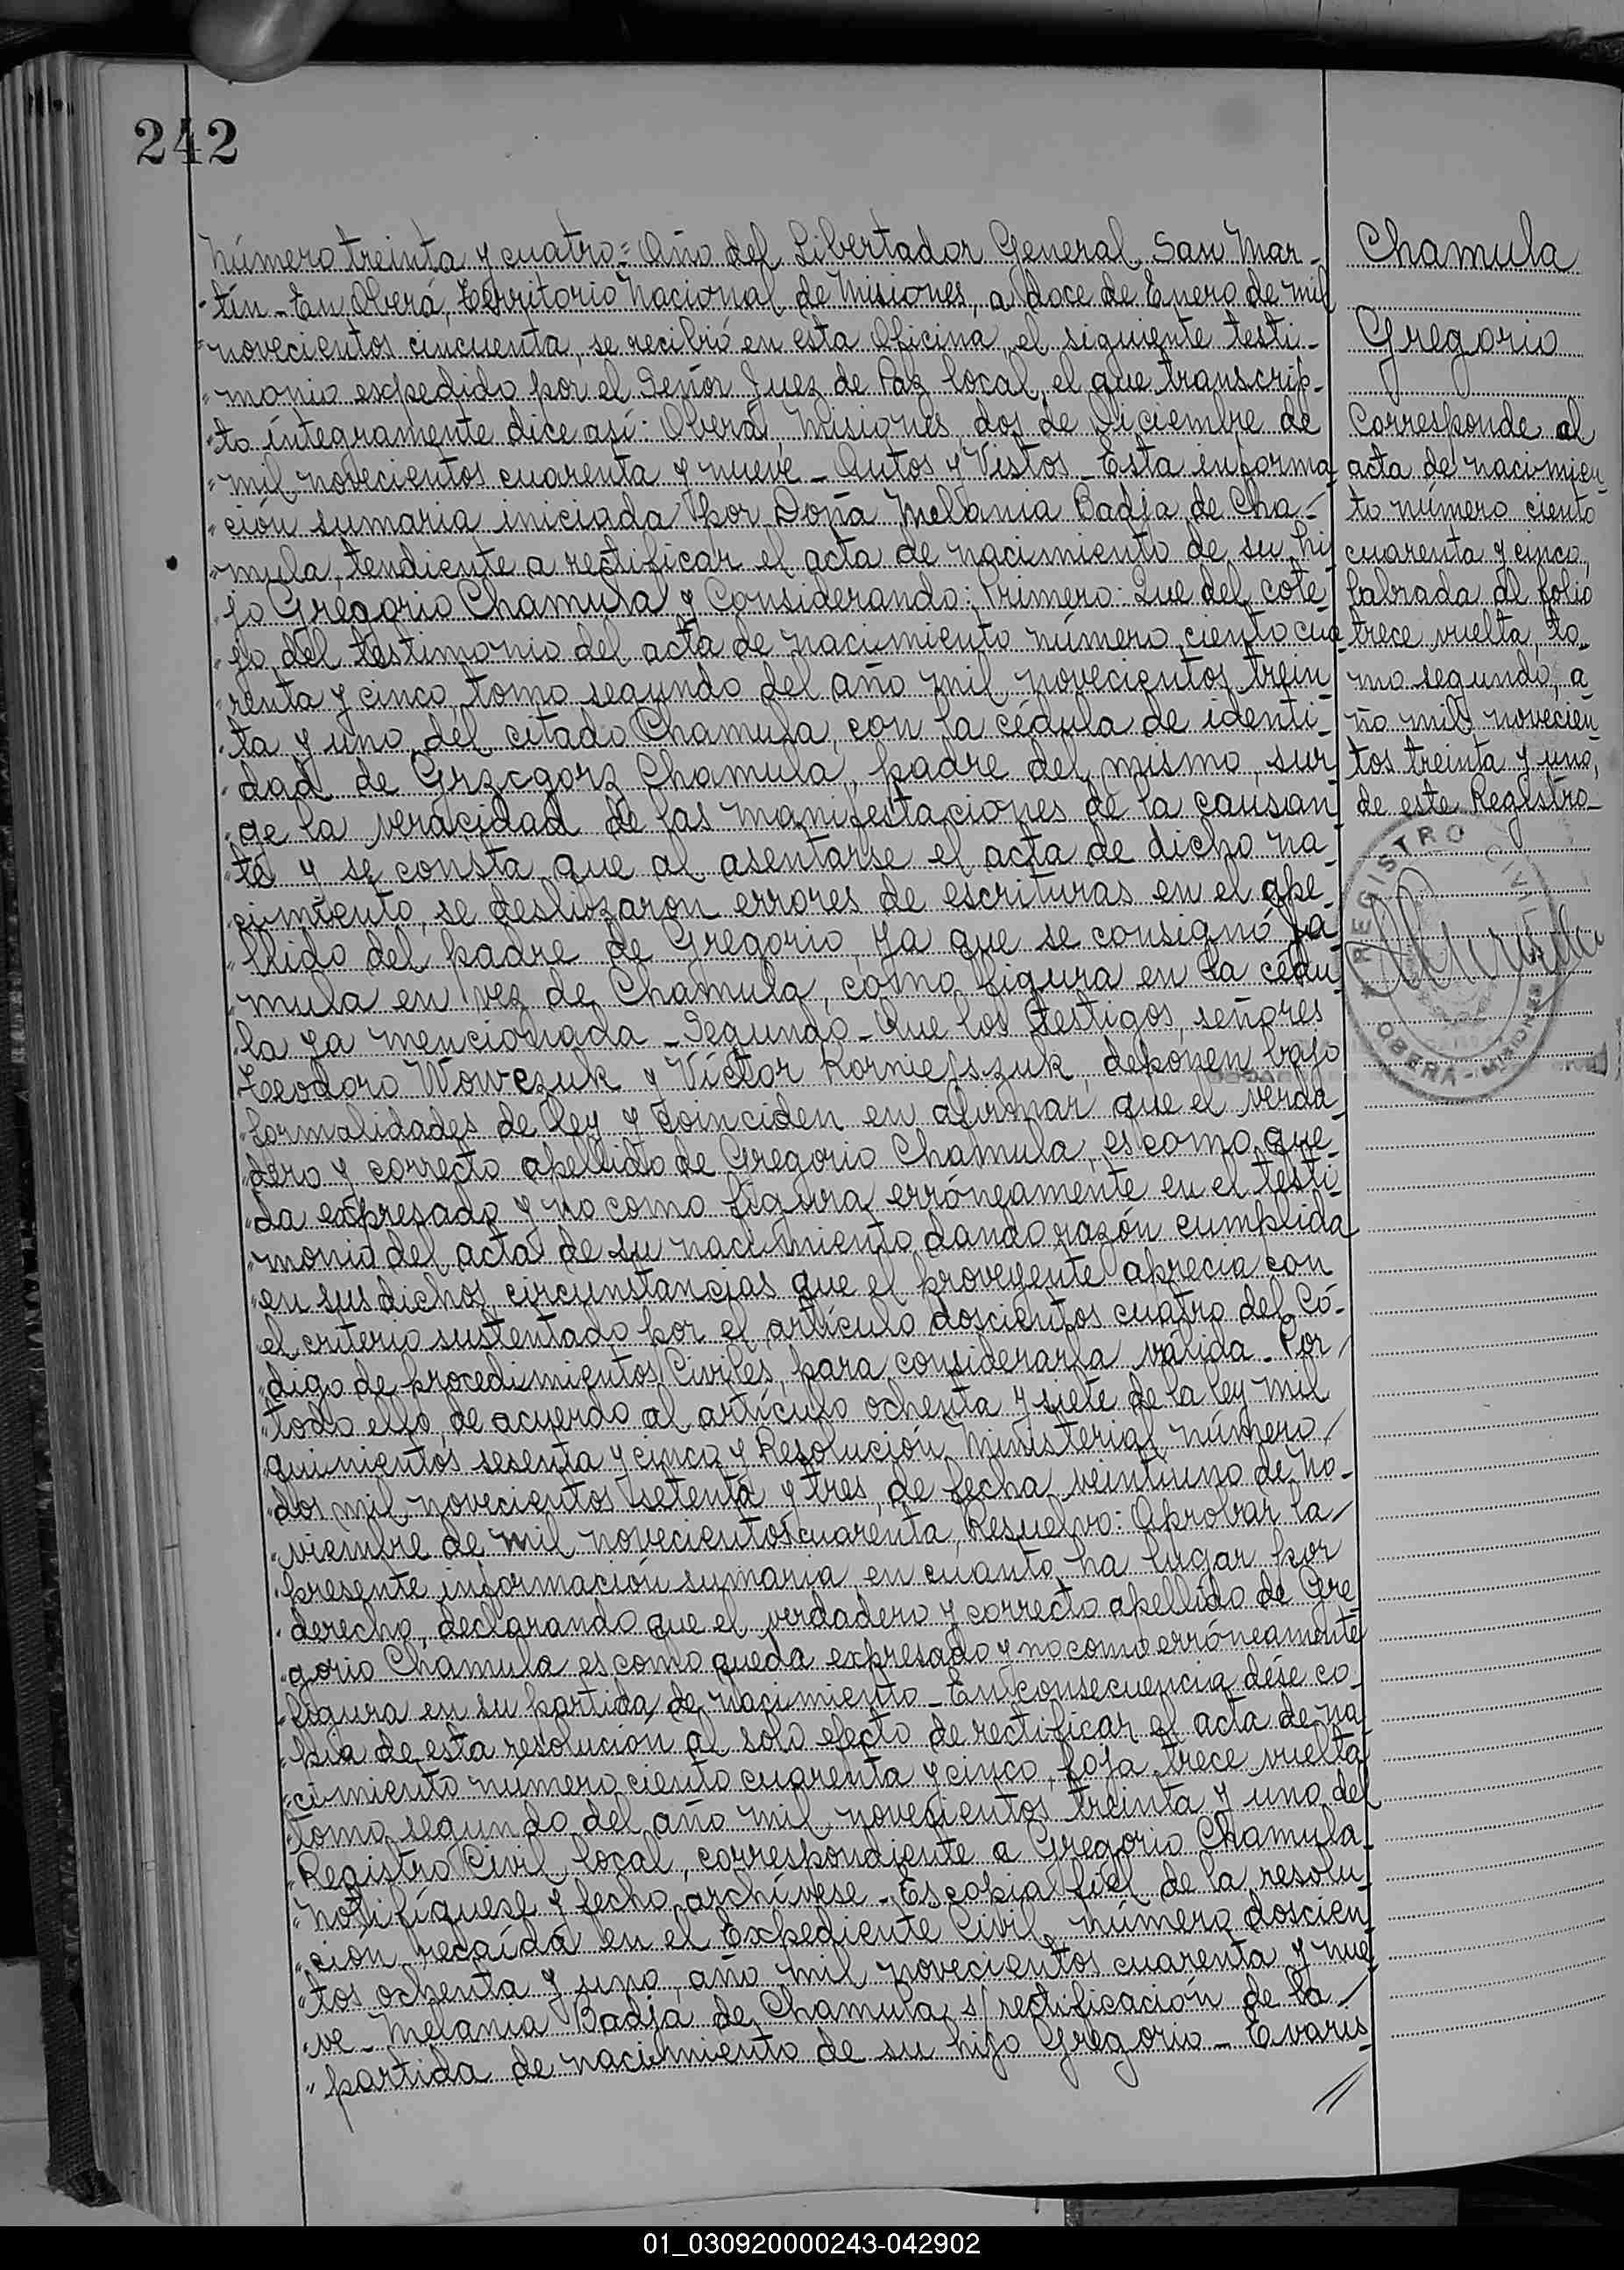 242
Número treinta y cuatro = Año del Libertador General San Mar-
"tín - En Oberá, Territorio Nacional de Misiones, a doce de Enero de mil
"novecientos cincuenta, se recibió en esta Oficina, el siguiente testi-
"monio expedido por el Señor Juez de Paz local, el que transcrip-
"to íntegramente dice así: Oberá, Misiones, dos de Diciembre de
"mil novecientos cuarenta y nueve - Autos y Vistos - Esta informa-
"ción sumaria iniciada por Doña Melania Badja de Cha-
"mula, tendiente a rectificar el acta de nacimiento de su hi-
"jo Gregorio Chamula y Considerando: Primero: Que del cote-
"jo del testimonio del acta de nacimiento número ciento cua-
"renta y cinco, tomo segundo del año mil novecientos trein-
"ta y uno del citado Chamula, con la cédula de identi-
"dad de Grzcgorz Chamula, padre del mismo, sur-
"ge la veracidad de las manifestaciones de la causan-
"te y se consta que al asentarse el acta de dicho na-
"cimiento, se deslizaron errores de escrituras en el ape-
"llido del padre de Gregorio, ya que se consignó Ja-
"mula en vez de Chamula, como figura en la cédu-
"la ya mencionada - Segundo - Que los testigos, señores
Teodoro Wowczuk y Víctor Kornielszuk, deponen bajo
"formalidades de ley y coinciden en afirmar que el verda-
"dero y correcto apellido de Gregorio Chamula, es como que-
"da expresado y no como figura erróneamente en el testi-
"monio del acta de su nacimiento dando razón cumplida
"en sus dichos, circunstancias que el proveyente aprecia con
"el criterio sustentado por el artículo doscientos cuatro del Có-
"digo de procedimientos Civiles, para considerarla válida - Por /
"todo ello, de acuerdo al artículo ochenta y siete de la ley mil
"quinientos sesenta y cinco y Resolución Ministerial número /
"dos mil novecientos setenta y tres, de fecha veintiuno de No-
"viembre de mil novecientos cuarenta, Resuelvo: Aprobar la /
"presente información sumaria, en cuanto ha lugar por
"derecho, declarando que el verdadero y correcto apellido de Gre-
"gorio Chamula es como queda expresado y no como erróneamente
"figura en su partida de nacimiento - En consecuencia dése co-
"pia de esta resolución al solo efecto de rectificar el acta de na-
"cimiento número ciento cuarenta y cinco, foja trece vuelta
"tomo segundo del año mil novecientos treinta y uno del
"Registro Civil local, correspondiente a Gregorio Chamula -
"Notifíquese y fecho archívese - Es copia fiel de la resolu-
"ción recaída en el Expediente Civil número doscien-
"tos ochenta y uno, año mil novecientos cuarenta y nue-
"ve - Melania Badja de Chamula s/ rectificación de la /
"partida de nacimiento de su hijo Gregorio - Evaris-
//
Chamula
Gregorio
Corresponde al
acta de nacimien-
to número ciento
cuarenta y cinco,
labrada al folio
trece vuelta, to-
mo segundo, a-
ño mil novecien-
tos treinta y uno,
de este Registro -
REGISTRO CIVIL
OBERA - MISIONES
01_030920000243-042902